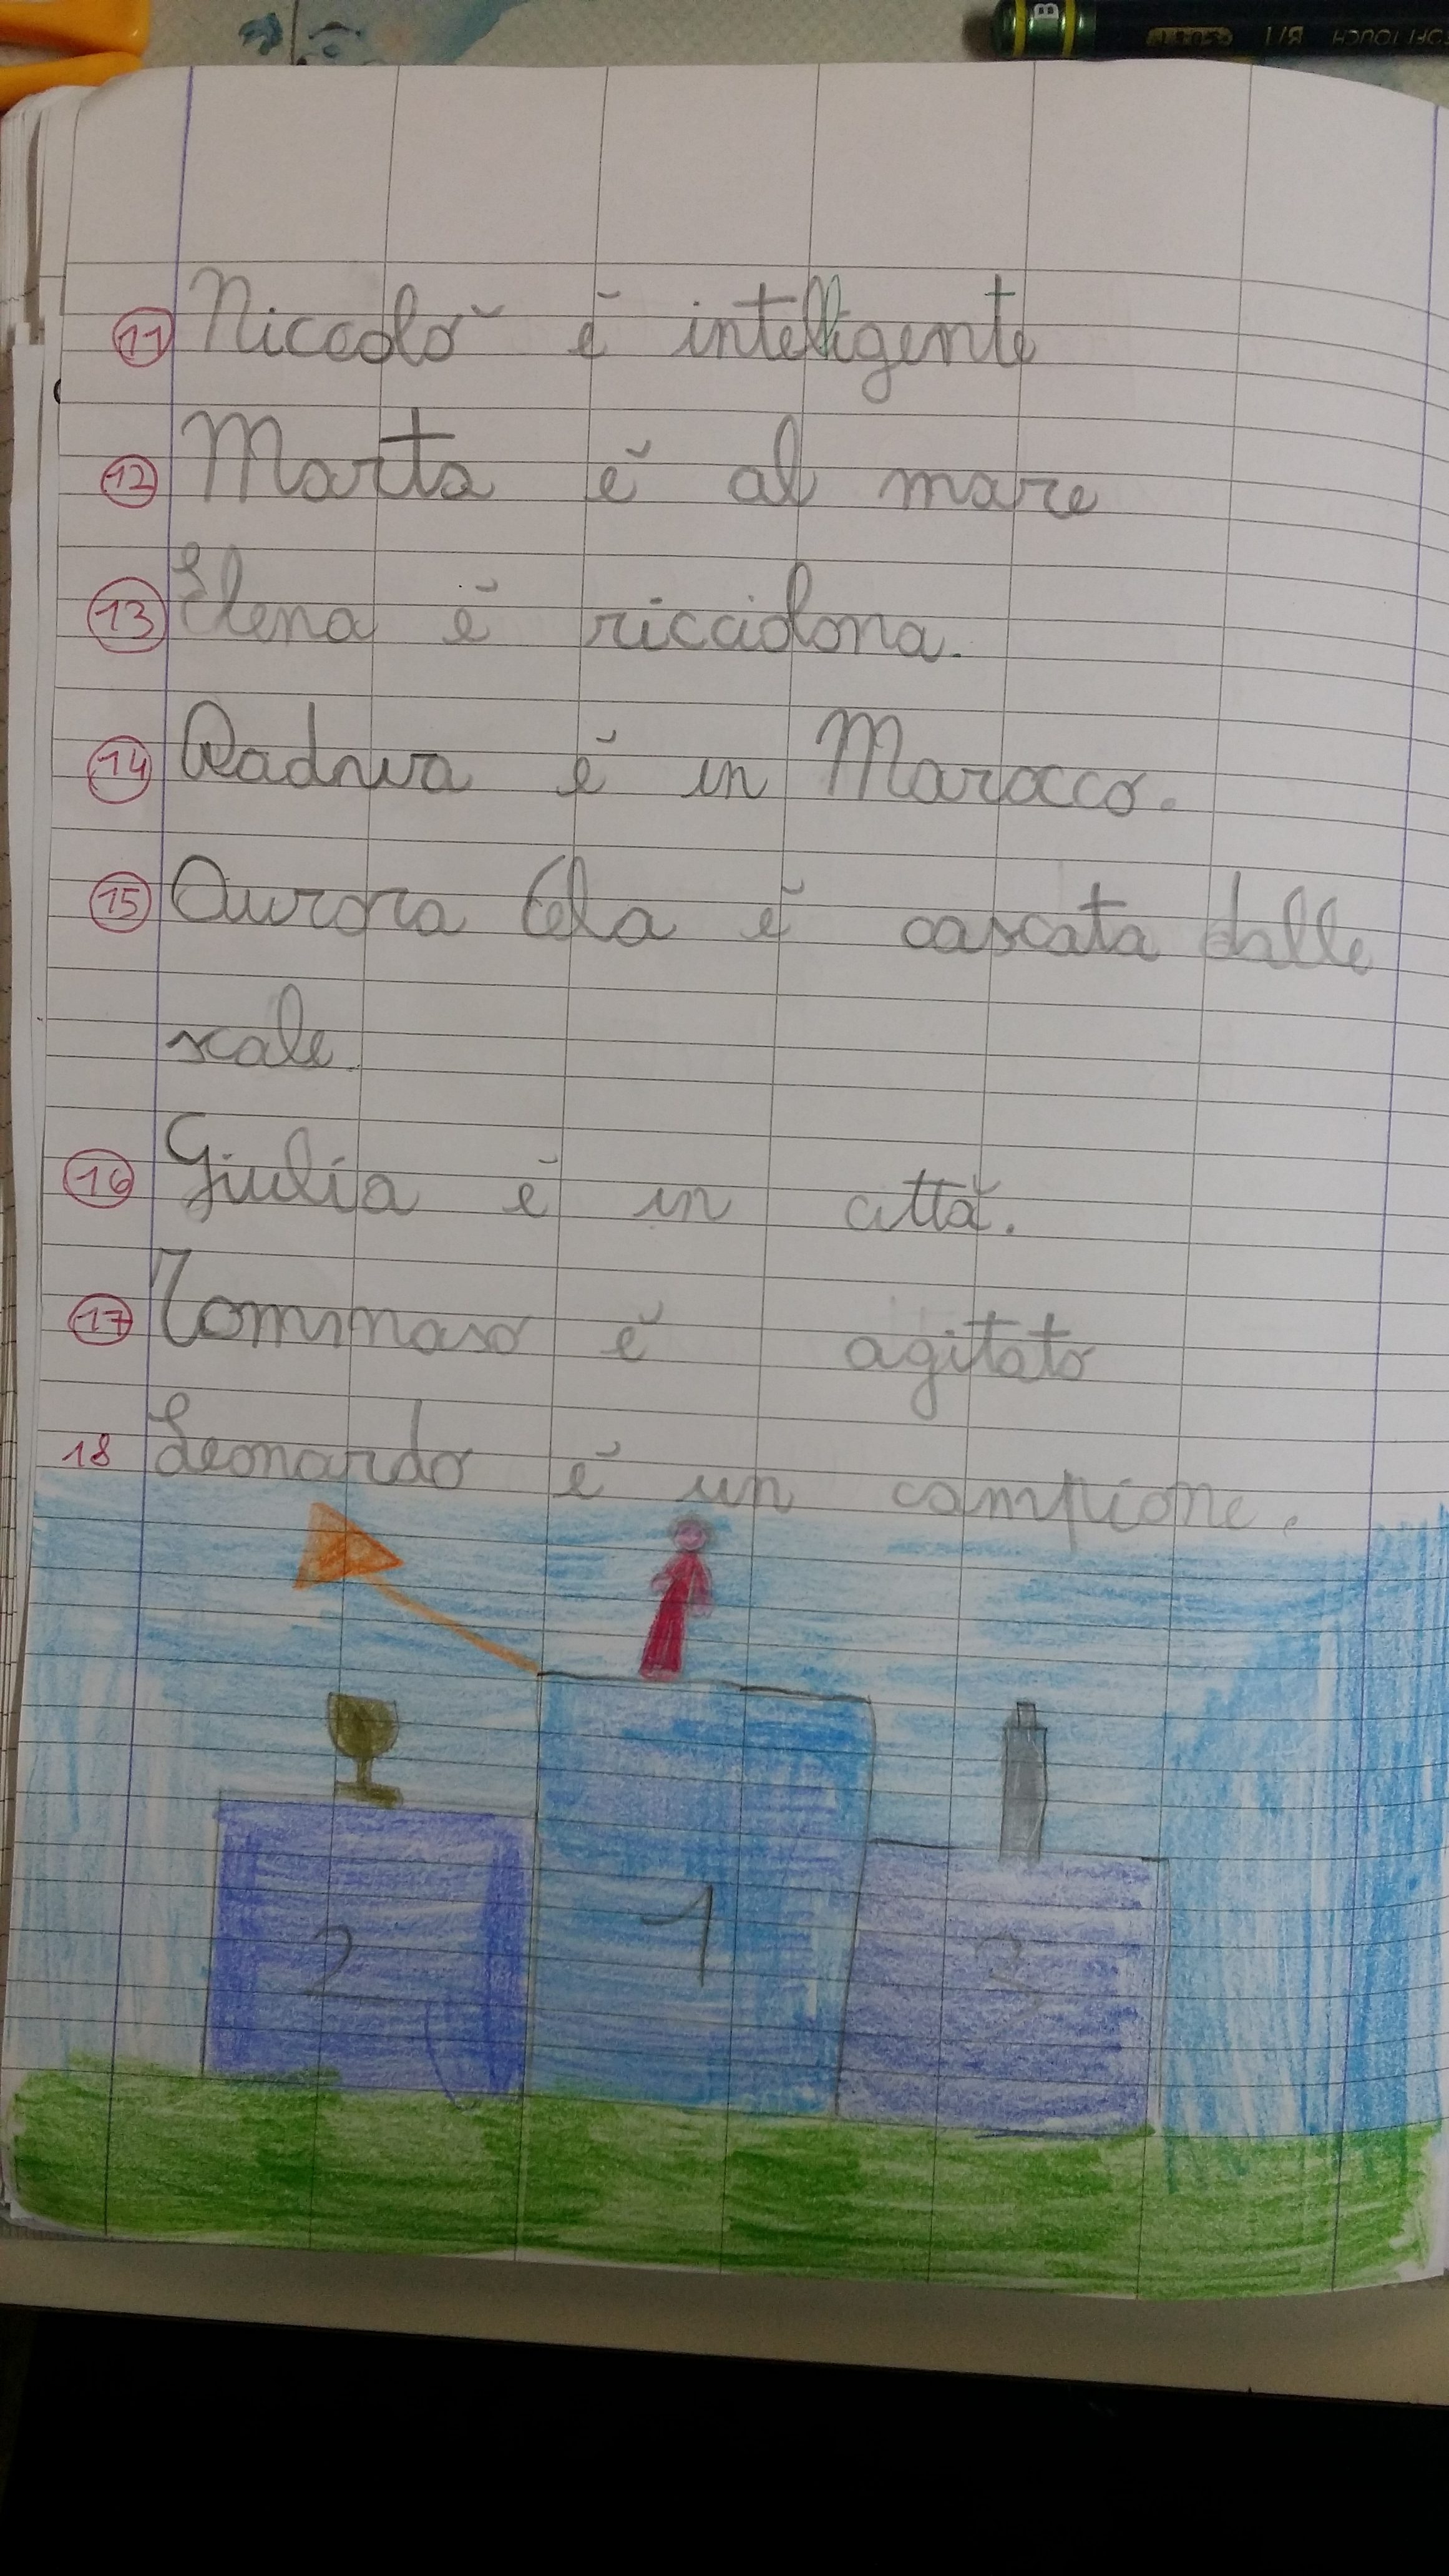 11 Niccolò è intelligente
12 Marta è al mare
13 Elena è ricciolona.
14 Radwa è in Marocco.
15 Aurora Cela è cascata dalle
scale.
16 Giulia è in città.
17 Tommaso è agitato
18 Leonardo è un campione.
2 1 3
B